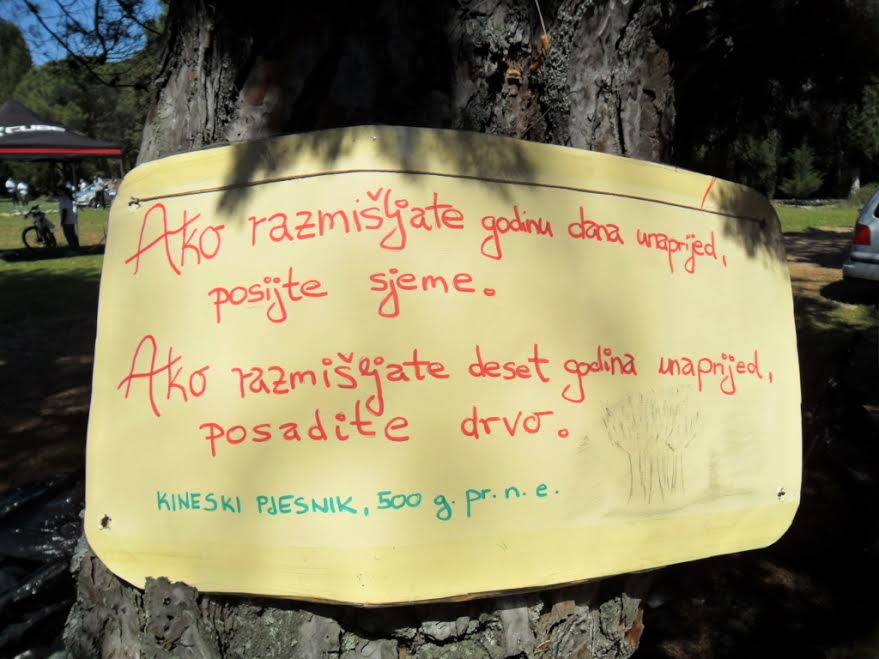 Ako razmišljate godinu dana unaprijed,
posijte sjeme.
Ako razmišljate deset godina unaprijed,
posadite drvo.
KINESKI PJESNIK, 500 g. pr. n. e.